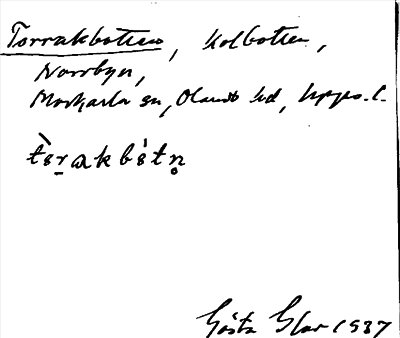 Torrakbotten, Kolbotten,
Norrbyn,
Morkarla sn, Olands hd, Upps. l.
tʹɵrakbɵtn̥
Gösta Glas 1937